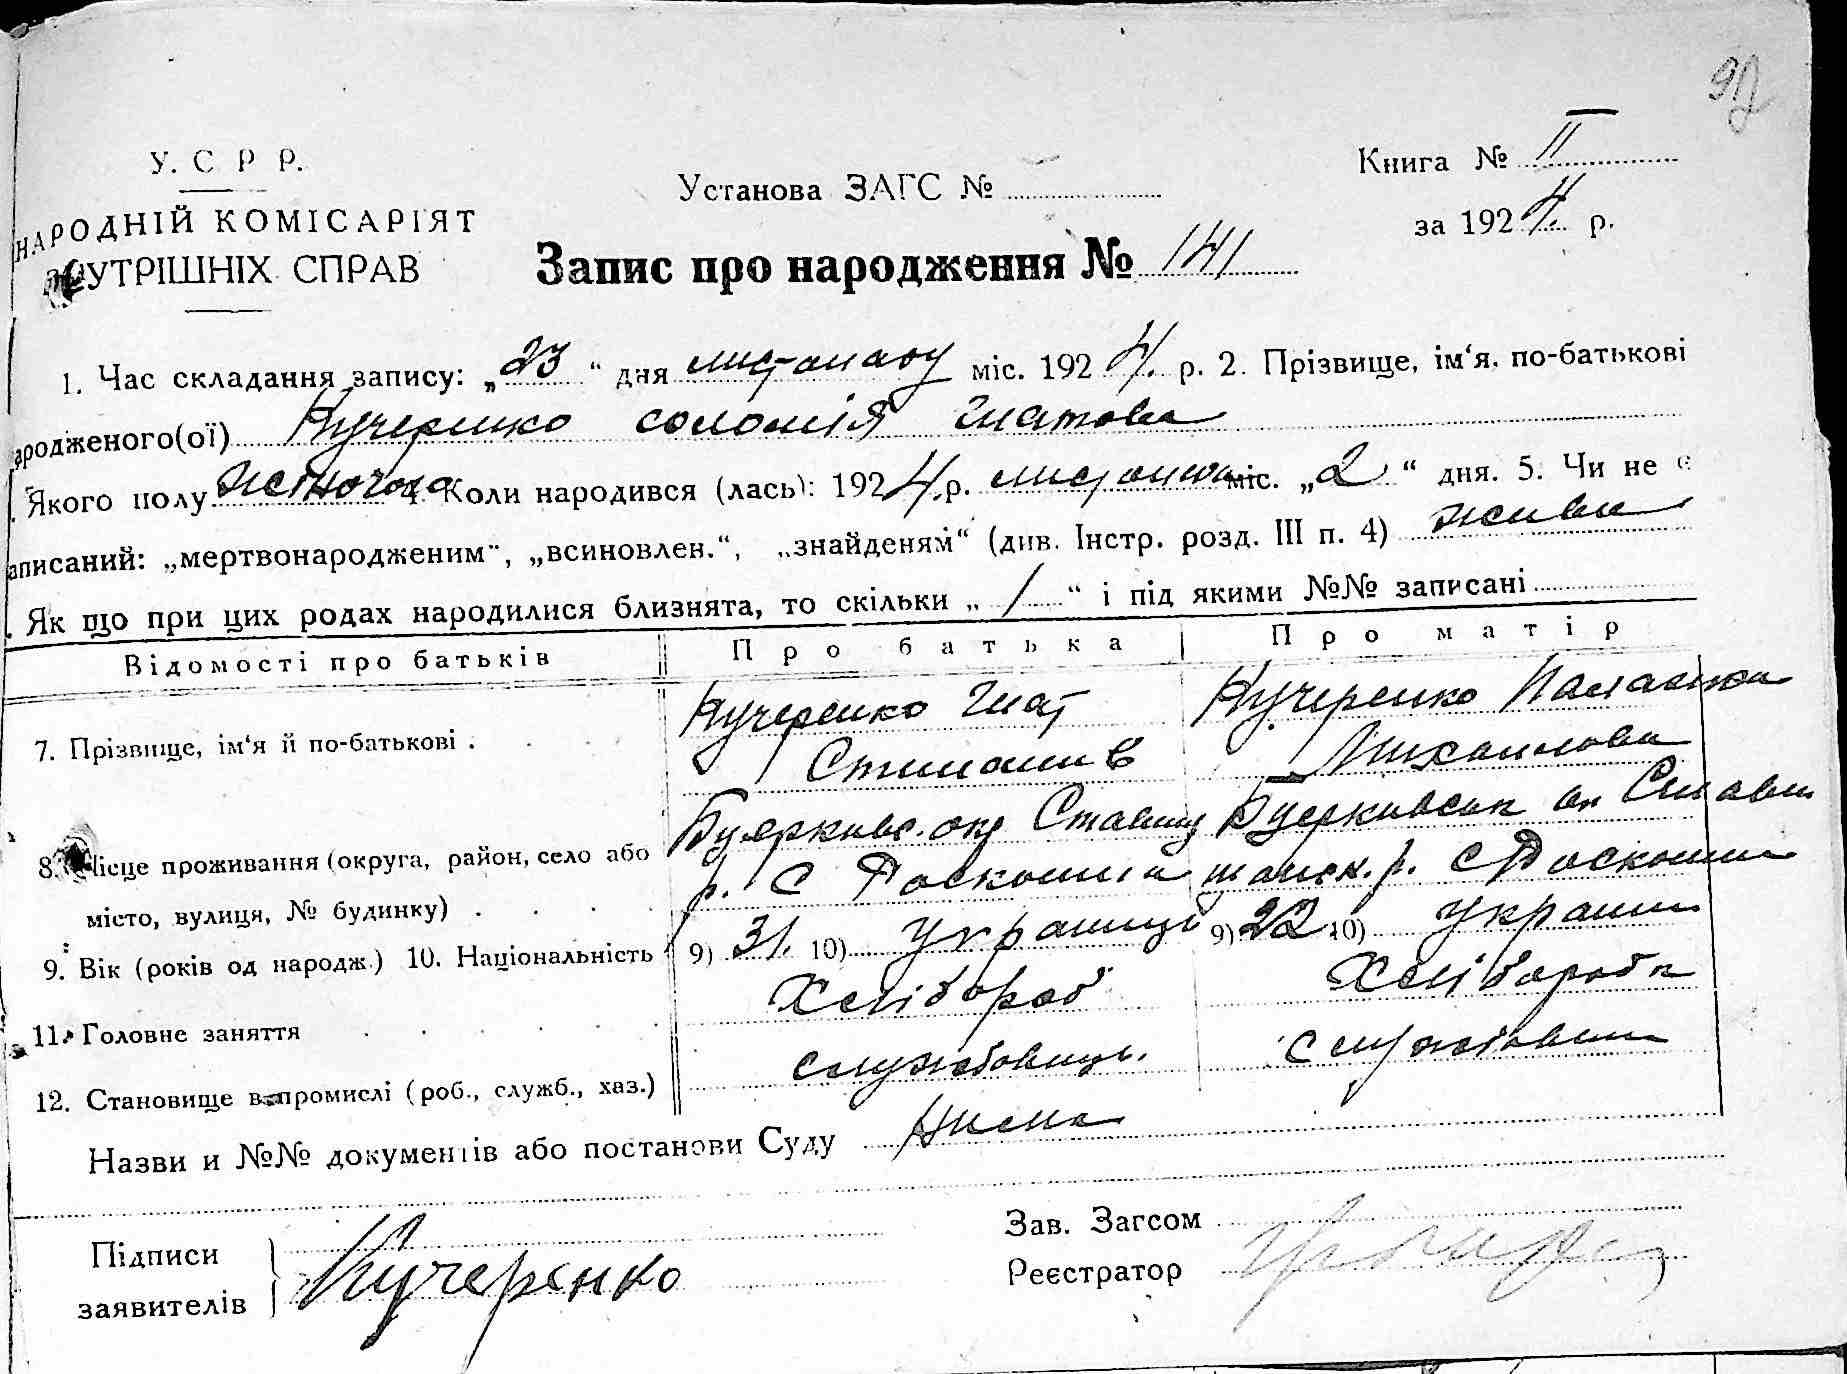 92
У. С Р Р.
НАРОДНІЙ КОМІСАРІЯТ
ВНУТРІШНІХ СПРАВ
Установа ЗАГС №
Книга № II
за 1924 р.
Запис про народження № 141
1. Час складання запису: „23“ дня листопаду міс. 1924. р. 2. Прізвище, ім‘я, по-батькові
ародженого(ої) Кучеренко соломія Гнатова
Якого полу жіночого 4. Коли народився (лась): 1924. р. листопада міс. „2“ дня. 5. Чи не є
аписаний: „мертвонародженим“, „всиновлен.“, „знайденям“ (див. Інстр. розд. III п. 4) жива
. Як що при цих родах народилися близнята, то скільки „ / “ і під якими №№ записані
Відомості про батьків Про батька Про матір
7. Прізвище, ім‘я й по-батькові . Кучеренко Гнат Кучеренко Палажка
Михайлова
8. Місце проживання (округа, район, село або
місто, вулиця, № будинку) . р. С Роскошна р. с Роскошна
9. Вік (років од народж.) 10. Національність 9) 31. 10) Українець 9) 22 10) Україн
11. Головне заняття Хлібороб Хлібороб
12. Становище в промислі (роб., служб., хаз.) службовець.
Назви и №№ документів або постанови Суду Нема
Підписи
заявителів Кучеренко
Зав. Загсом
Реєстратор